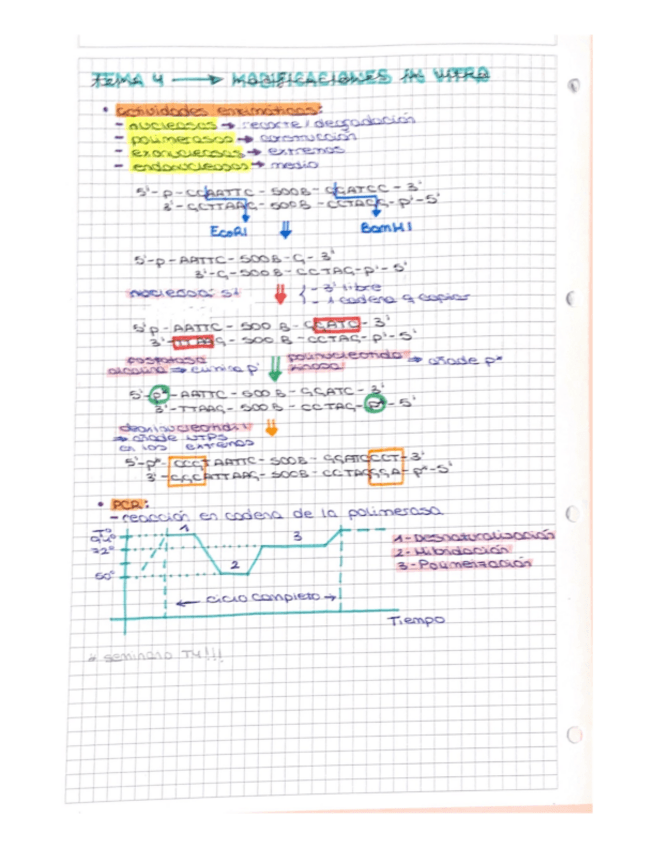 TEMA 4 → MODIFICACIONES IN VITRO
• Actividades enzimáticas:
- nucleasas → recorte / degradación
- polimerasas → construcción
- exonucleasas → extremos
- endonucleasas → medio
5'-p-CCAATTC - 500B - GGATCC - 3'
3'-GCTTAAG - 500B - CCTAGG-p'-5'
EcoRI BamHI
5'-p-AATTC - 500B - G - 3'
3'-G-500B - CCTAG-p'-5'
nucleasa S1 - 3' libre
- 1 cadena q copiar
5'p - AATTC - 500B - GGATC - 3'
3'-TTAAG - 500B - CCTAG-p'-5'
fosfatasa polinucleotido
alcalina → elimina p' kinasa → añade p*
5'-p*-AATTC - 500B - GGATC - 3'
3'-TTAAG - 500B - CCTAG-p*-5'
→ añade NTPs
en los extremos
5'-p*-CCCTAATTC - 500B - GGATCCCT-3'
3'-CGCATTAAG - 500B - CCTAGGGA-p*-5'
• PCR:
- reacción en cadena de la polimerasa
Tª
94º
72º
50º
1 2 3
1- Desnaturalización
2- Hibridación
3- Polimerización
← ciclo completo →
Tiempo
* seminario T4!!!